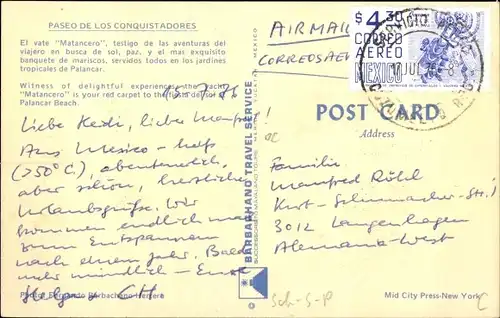 PASEO DE LOS CONQUISTADORES
El vate "Matancero", testigo de las aventuras del
viajero en busca de sol, paz, y el mas exquisito
banquete de mariscos, servidos todos en los jardines
tropicales de Palancar.
Witness of delightful experiences the yacht
"Matancero" is your red carpet to the feasts del sol at
Palancar Beach.
Liebe Heidi, lieber Manfred!
Aus Mexico - heiß
(>50°C), abenteuerlich,
aber schön, herzliche
Urlaubsgrüße. Wir
kommen endlich mal
zum Entspannen
nach einem Jahr. Bald
mehr mündlich - Eure
Helga + CH
Photo: Fernando Barbachano Herrera
BARBACHANO TRAVEL SERVICE
MEXICO
AIRMAIL
CORREO AEREO
$ 4.30
CORREO
AEREO
MEXICO
POST CARD
Address
Familie
Manfred Rühl
Kurt-Schumacher-Str.
3012 Langenhagen
Alemania-West
Sch-S-P
Mid City Press-New York